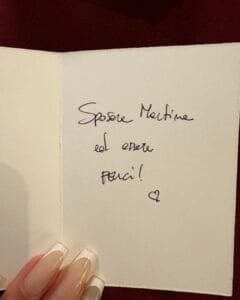 Sposare Martina
ed essere
FELICI!